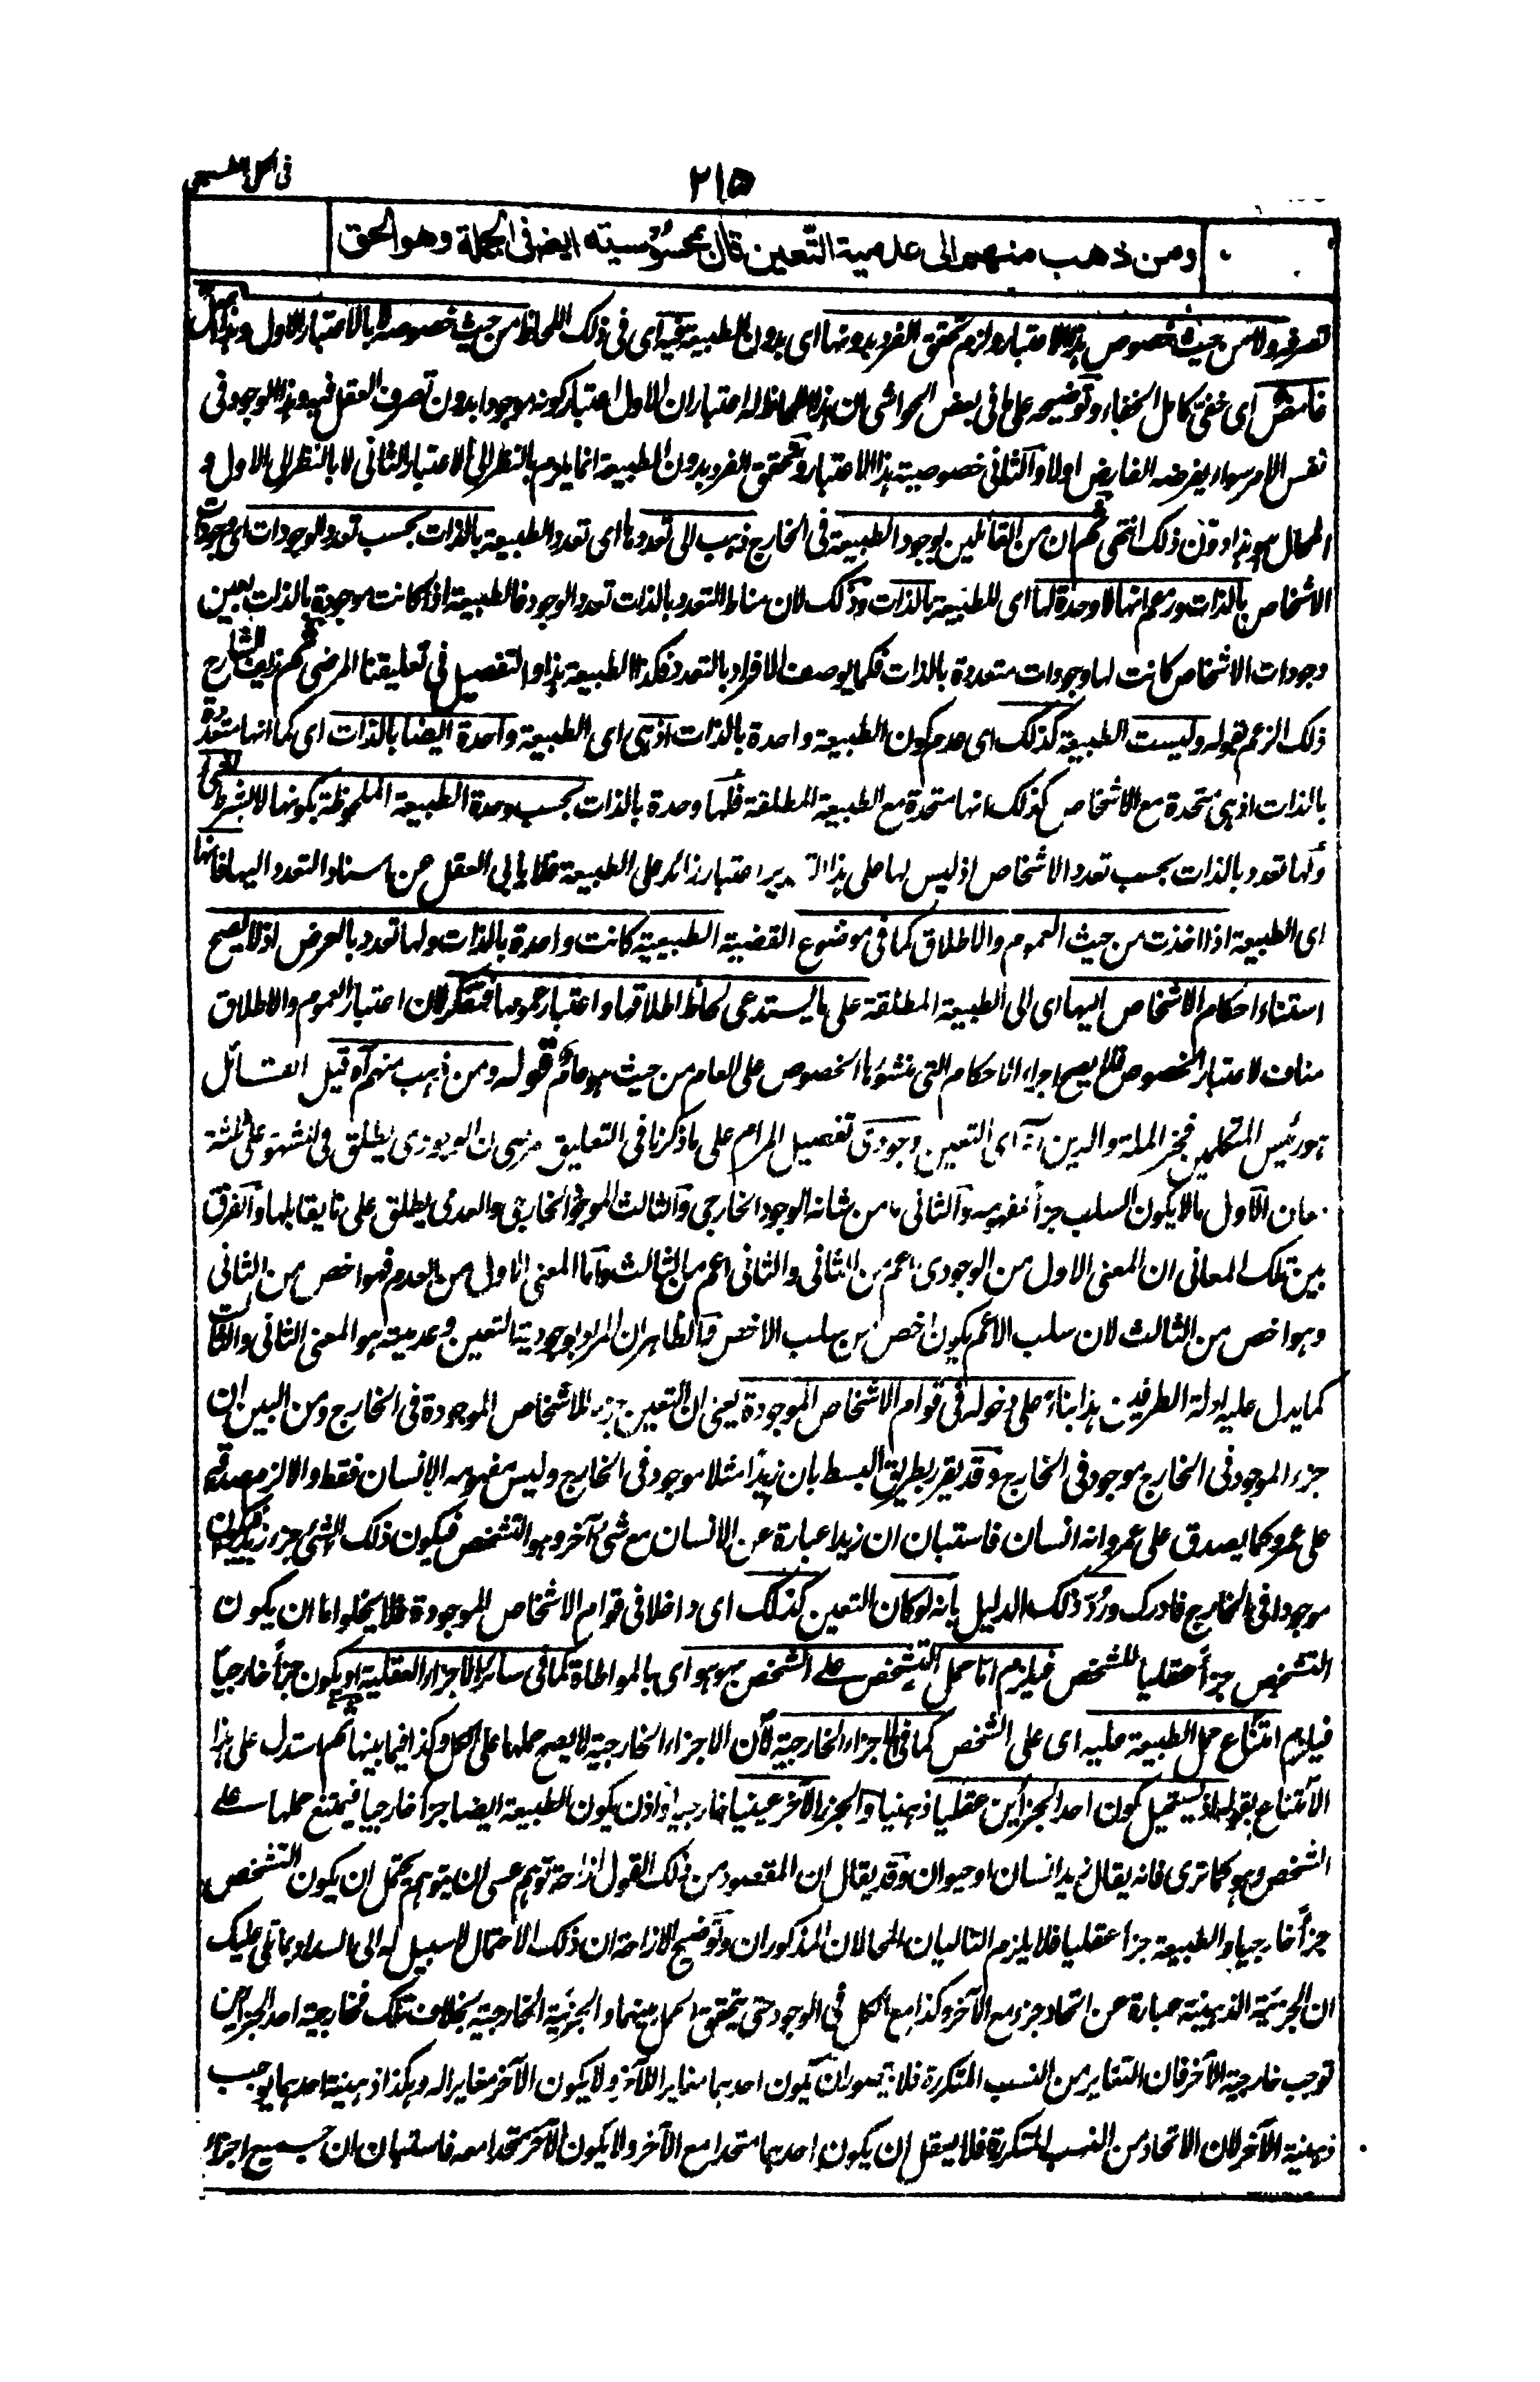 فى الكلى الطبيعى
٢١٥
ومن ذهب منهم الى عدمية التعين قال بمحسوسيته ايضا فى الجملة وهو الحق
تصرفه ولا من حيث خصوص هذا الاعتبار ولزم تحقق الفرد بدونها اى بدون الطبيعة فيه اى فى ذلك اللحاظ من حيث خصوصه لا بالاعتبار الاول وهذا
فامض اى خفى كامل الخفاء وتوضيحه على ما فى بعض الحواشى ان هذا اللحاظ له اعتباران الاول اعتبار كونه موجودا بدون تصرف العقل فيه وبهذا الوجود فى
نفس الامر سواء يفرضه الفارض اولا والثانى خصوصية هذا الاعتبار وتحقق الفرد بدون الطبيعة انما يلزم بالنظر الى الاعتبار الثانى لا بالنظر الى الاول و
المحال هو هذا دون ذلك انتهى ثم ان من القائلين بوجود الطبيعة فى الخارج ذهب الى تعددها اى تعدد الطبيعة بالذات بحسب تعدد الوجودات اى وجودات
الاشخاص بالذات وزعم انها لا وحدة لها اى للطبيعة بالذات وذلك لان مناط التعدد بالذات تعدد الوجود فالطبيعة اذا كانت موجودة بالذات بعين
وجودات الاشخاص كانت لها وجودات متعددة بالذات فكما يوصف الافراد بالتعدد فكذا الطبيعة هذا والتفصيل فى تعليقنا المرضى ثم زيف الشارح
ذلك الزعم بقوله وليست الطبيعة كذلك اى عدم كون الطبيعة واحدة بالذات اذ هى اى الطبيعة واحدة ايضا بالذات اى كما انها متعددة
بالذات اذ هى متحدة مع الاشخاص كذلك انها متحدة مع الطبيعة المطلقة فلها وحدة بالذات بحسب وحدة الطبيعة الملحوظة بكونها لا بشرط شىء
ولها تعدد بالذات بحسب تعدد الاشخاص اذ ليس لها على هذا التقدير اعتبار زائد على الطبيعة فلا يابى العقل عن اسناد التعدد اليها فانها
اى الطبيعة اذا اخذت من حيث العموم والاطلاق كما فى موضوع القضية الطبيعية كانت واحدة بالذات ولها تعدد بالعرض اذ لا يصح
استناد احكام الاشخاص اليها اى الى الطبيعة المطلقة على ما يستدعى لحاظ اطلاقها واعتبار عمومها فتفكر لان اعتبار العموم والاطلاق
مناف لاعتبار الخصوص فلا يصح اجراء الاحكام التى منشؤها الخصوص على العام من حيث هو عام قوله ومن ذهب منهم آه قيل القائل
هو رئيس المتكلمين فخر الملة والدين آه اى التعين وجودى تفصيل المرام على ما ذكرنا فى التعليق مرضى ان الوجودى يطلق فى المشهور على ثلثة
معان الاول ما لا يكون السلب جزأ لمفهومه والثانى ما من شانه الوجود الخارجى والثالث الموجود الخارجى والعدمى يطلق على ما يقابلها والفرق
بين تلك المعانى ان المعنى الاول من الوجودى اعم من الثانى والثانى اعم من الثالث واما المعنى الاول من العدم فهو اخص من الثانى
وهو اخص من الثالث لان سلب الاعم يكون اخص من سلب الاخص والظاهر ان المراد بوجودية التعين وعدميته هو المعنى الثانى والثالث
كما يدل عليه ادلة الطرفين هذا بناء على دخوله فى قوام الاشخاص الموجودة يعنى ان التعين جزء للاشخاص الموجودة فى الخارج ومن البين ان
جزء الموجود فى الخارج موجود فى الخارج وقد يقرر بطريق البسط بان زيدا مثلا موجود فى الخارج وليس مفهومه الانسان فقط والا لزم صدقه
على عمرو كما يصدق على عمرو انه انسان فاستبان ان زيدا عبارة عن الانسان مع شىء آخر وهو التشخص فيكون ذلك الشىء جزء زيد فيكون
موجودا فى الخارج فادرك ورد ذلك الدليل بانه لو كان التعين كذلك اى داخلا فى قوام الاشخاص الموجودة فلا يخلو اما ان يكون
التشخص جزأ عقليا للشخص فيلزم اما حمل التشخص على الشخص بهو هو اى بالمواطاة كما فى سائر الاجزاء العقلية او يكون جزأ خارجيا
فيلزم امتناع حمل الطبيعة عليه اى على الشخص كما فى الاجزاء الخارجية لان الاجزاء الخارجية لا يصح حملها على الكل وكذا فيما بينها ثم استدل على هذا
الامتناع بقوله اذ يستحيل كون احد الجزأين عقليا ذهنيا والجزء الآخر عينيا خارجيا واذن يكون الطبيعة ايضا جزأ خارجيا فيمتنع حملها على
الشخص وهو كما ترى فانه يقال زيد انسان او حيوان وقد يقال ان المقصود من ذلك القول ازاحة توهم عسى ان يتوهم يحتمل ان يكون التشخص
جزأ خارجيا والطبيعة جزأ عقليا فلا يلزم التاليان المحالان المذكوران وتوضيح الازاحة ان ذلك الاحتمال لا سبيل له الى السداد بما تلى عليك
ان الجزئية الذهنية عبارة عن اتحاد جزء مع الآخر وكذا مع الكل فى الوجود حتى يتحقق الحمل بينهما والجزئية الخارجية بخلاف تلك فخارجية احد الجزأين
توجب خارجية الآخر فان التغاير من النسب المتكررة فلا يتصور ان يكون احدهما مغايرا للآخر ولا يكون الآخر مغايرا له وهكذا ذهنية احدهما يوجب
ذهنية الآخر لان الاتحاد من النسب المتكررة فلا يعقل ان يكون احدهما متحدا مع الآخر ولا يكون الآخر متحدا معه فاستبان ان جميع اجزاء